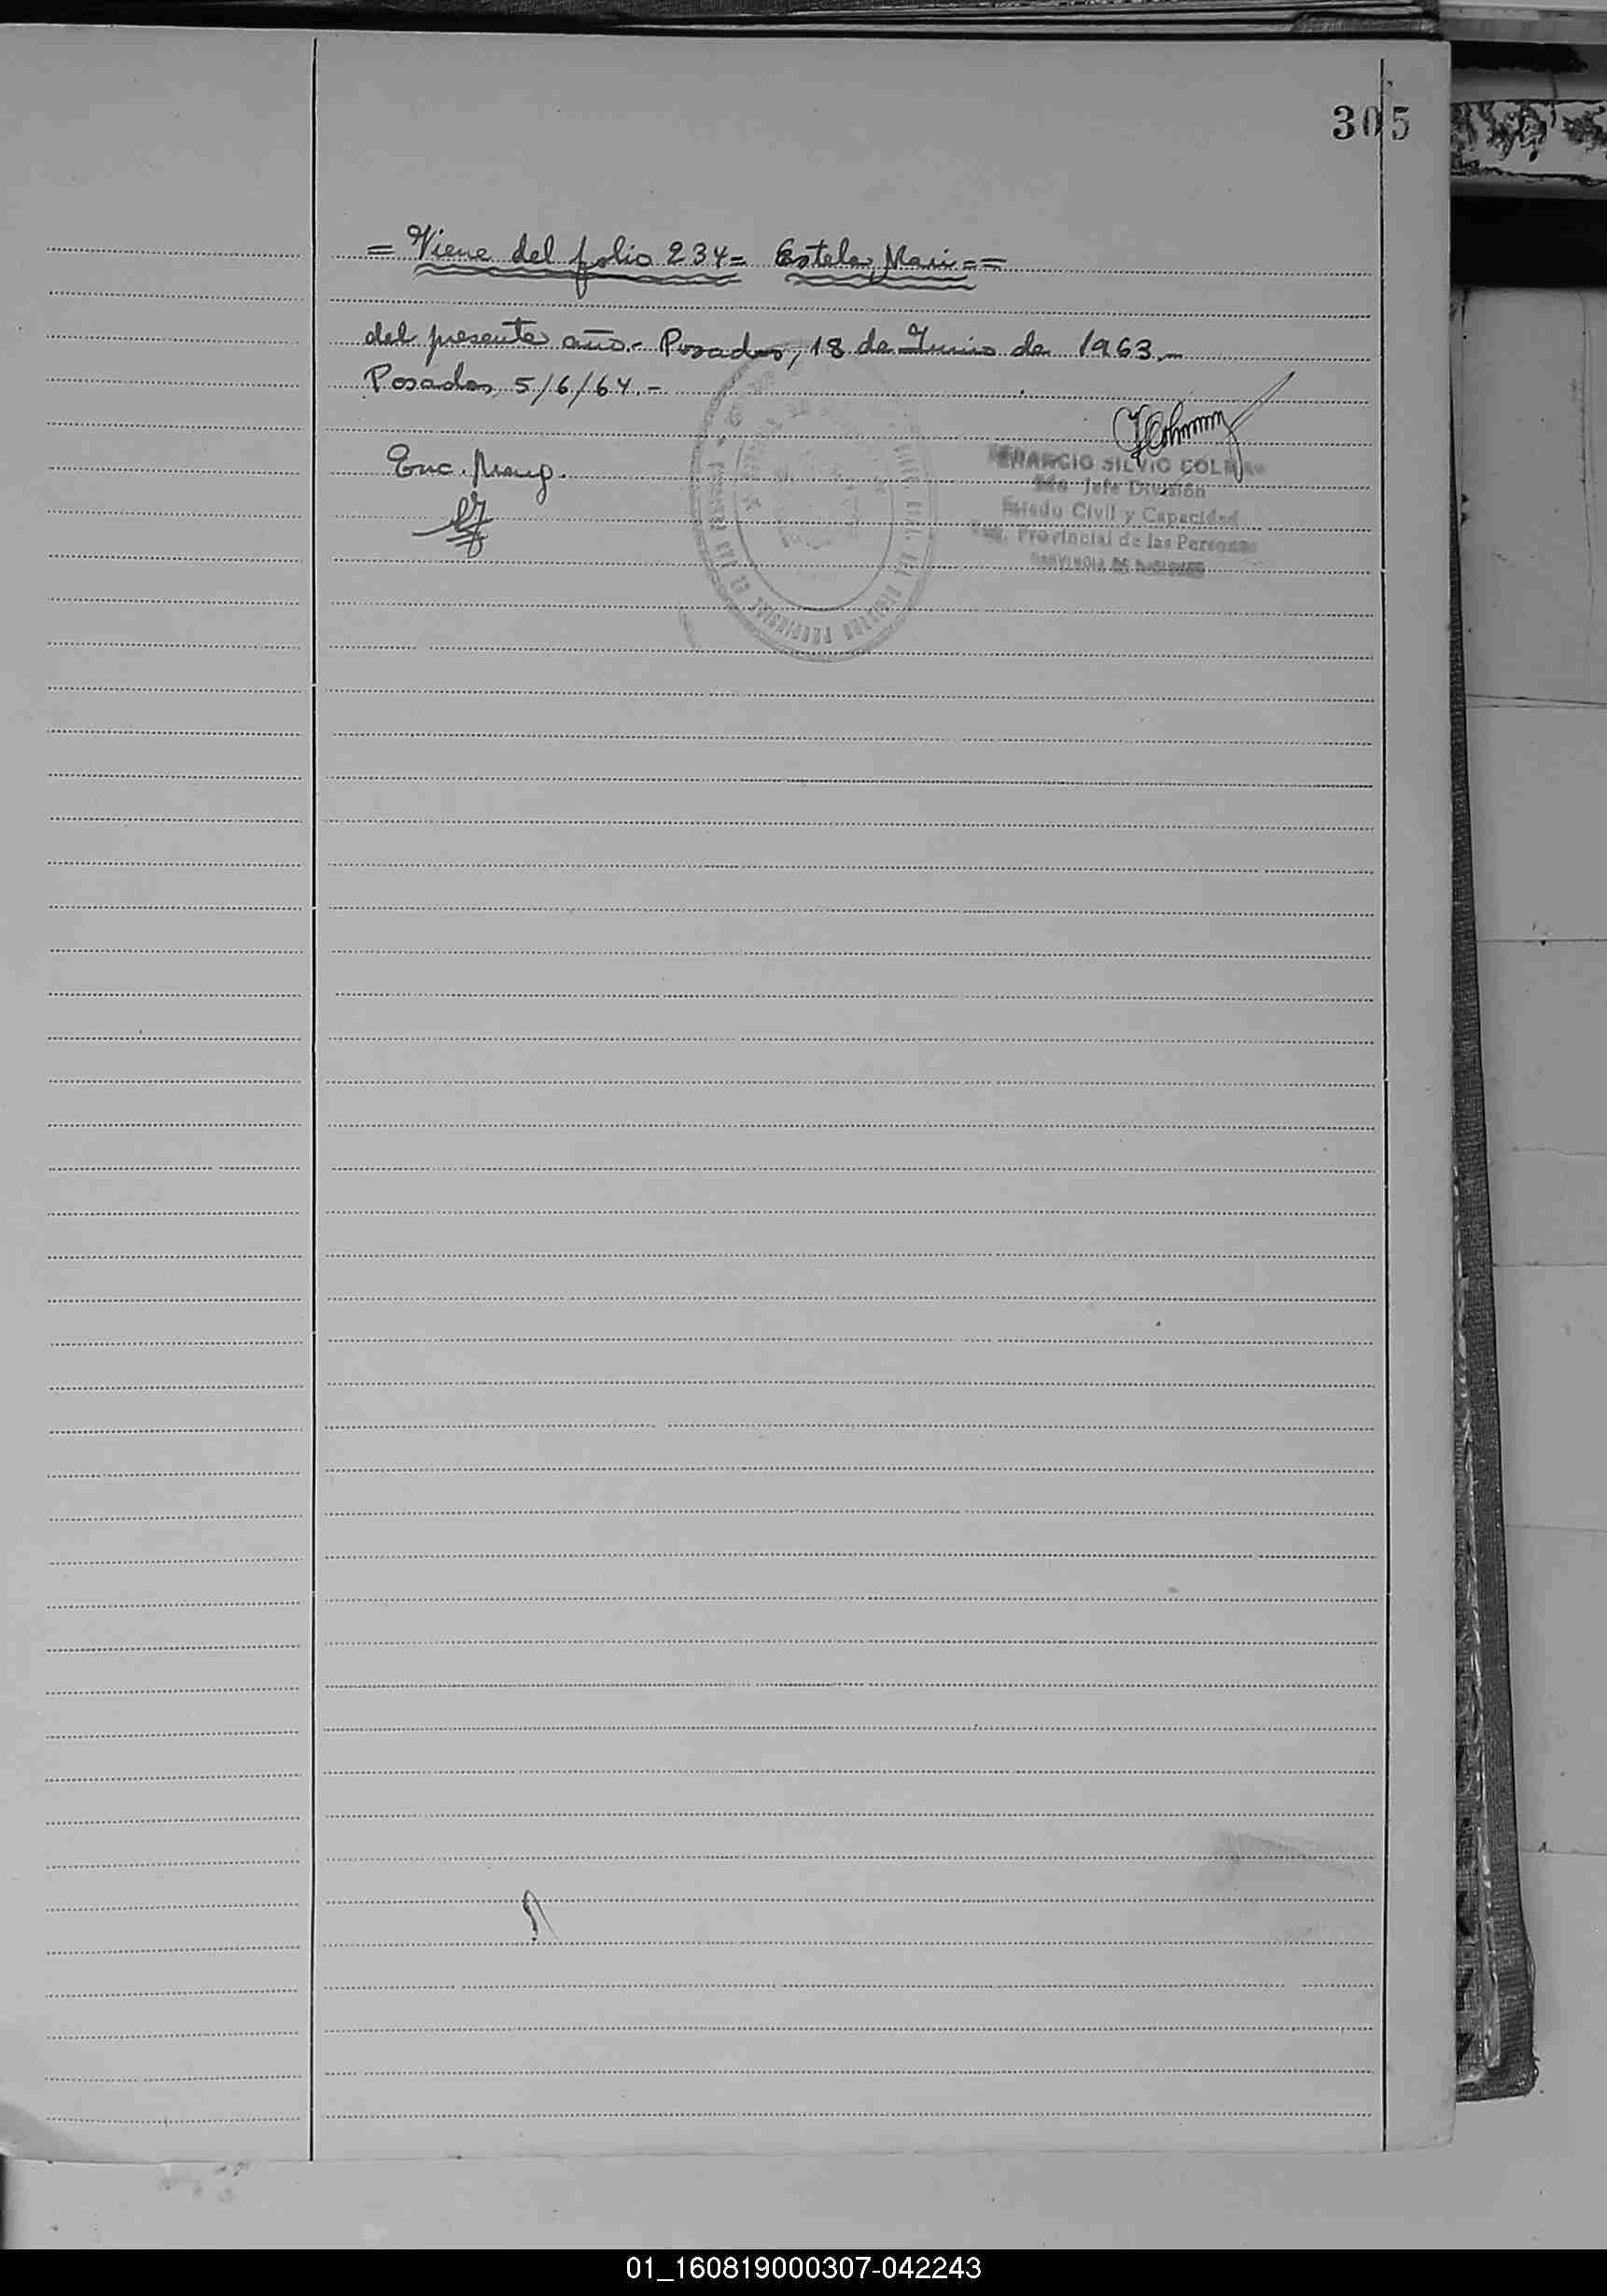 305
= Viene del folio 234= Estela Mari==
del presente año.- Posadas, 18 de Junio de 1963.-
Posadas, 5/6/64.-
Enc. Marg.
SILVIO COLM
Jefe División
Estado Civil y Capacidad
Provincial de las Personas
01_160819000307-042243